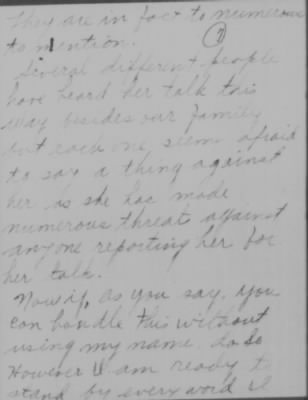 They are in fact to numerous
to mention. 7
Several different people
have heard her talk this
way besides our family
but each one seem afraid
to say a thing against
her as she has made
numerous threats against
anyone reporting her for
her talk.
Now if, as you say, you
can handle this without
using my name do so
However I am ready to
stand by every word I